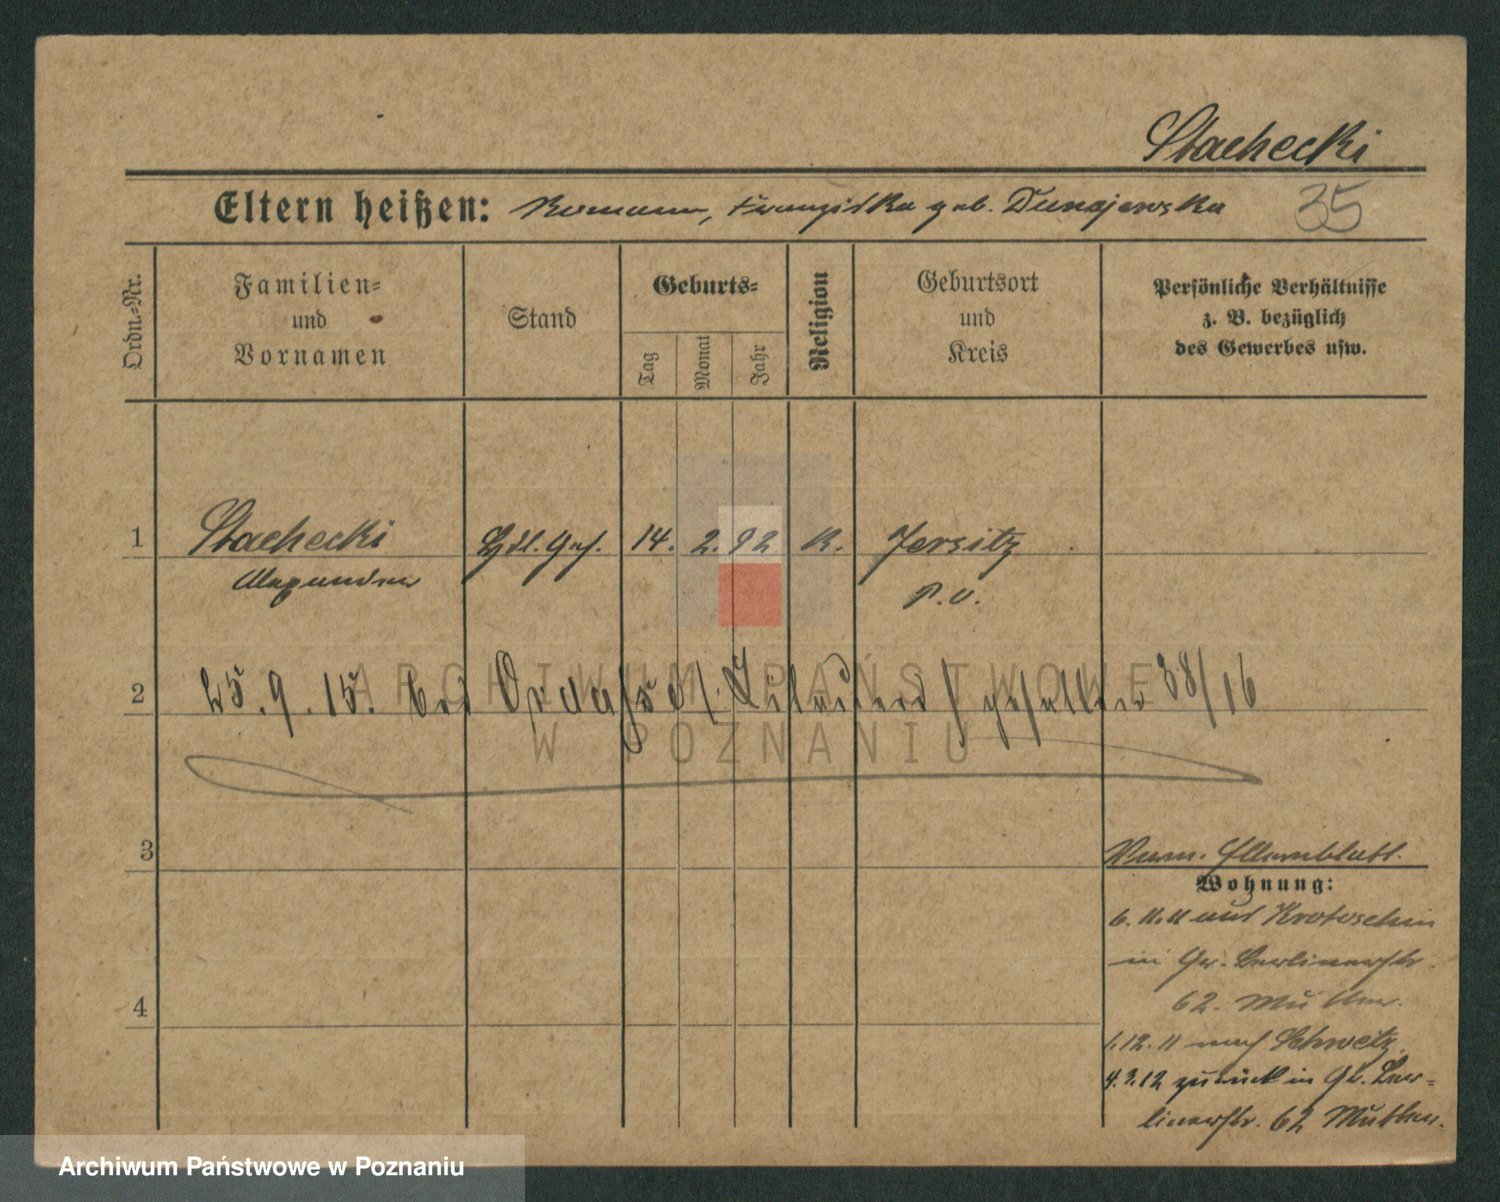 Stachecki
Eltern heißen: Roman, Franziska geb. Dunajewska 35
Ordn.=Nr.
Familien=
und
Vornamen
Stand
Geburts=
Tag
Monat
Jahr
Religion
Geburtsort
und
Kreis
Persönliche Verhältnisse
z. B. bezüglich
des Gewerbes usw.
1 Stachecki Hdl. Geh. 14. 2. 92 K. Jersitz
Alexander P. O.
2 25. 9. 15. bei gefallen 38/16
3
Vern. Elternblatt.
Wohnung:
6. 11. 11 aus Krotoschin
in Gr. Berlinerstr.
62. Mutter.
1. 12. 11 nach Schwetz
4. 3. 12 zurück in Gr. Ber=
linerstr. 62 Mutter.
4
ARCHIWUM PAŃSTWOWE
W POZNANIU
Archiwum Państwowe w Poznaniu